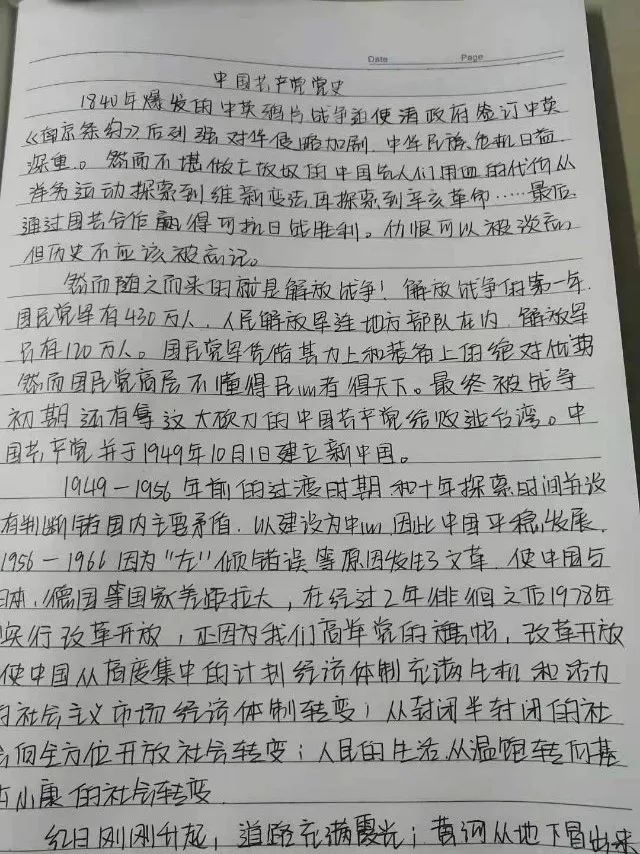 Date Page
中国共产党党史
1840年爆发的中英鸦片战争迫使清政府签订中英
《南京条约》后列强对华侵略加剧,中华民族危机日益
深重。然而不堪做亡故奴的中国人们用血的代价从
洋务运动探索到维新变法,再探索到辛亥革命……最后
通过国共合作赢得了抗日战胜利。仇恨可以被谈忘
但历史不应该被忘记。
然而随之而来的就是解放战争!解放战争的第一年,
国民党军有430万人,人民解放军连地方部队在内,解放军
只有120万人。国民党军凭借其力上和装备上的绝对优势
然而国民党高层不懂得民心者得天下。最终被战争
初期还有拿这大砍刀的中国共产党给败逃台湾。中
国共产党并于1949年10月1日建立新中国。
1949-1956年前的过渡时期和十年探索时间并没
有判断错国内主要矛盾,以建设为中心,因此中国平稳发展,
1956-1966因为“左”倾错误等原因发生了文革,使中国与
日本,德国等国家差距拉大,在经过2年徘徊之后1978年
实行改革开放,正因为我们高举党的旗帜,改革开放
使中国从高度集中的计划经济体制充满生机和活力
的社会主义市场经济体制转变;从封闭半封闭的社
会向全方位开放社会转变;人民的生活从温饱转向基
本小康的社会转变
红日刚刚升起,道路充满霞光;黄河从地下冒出来